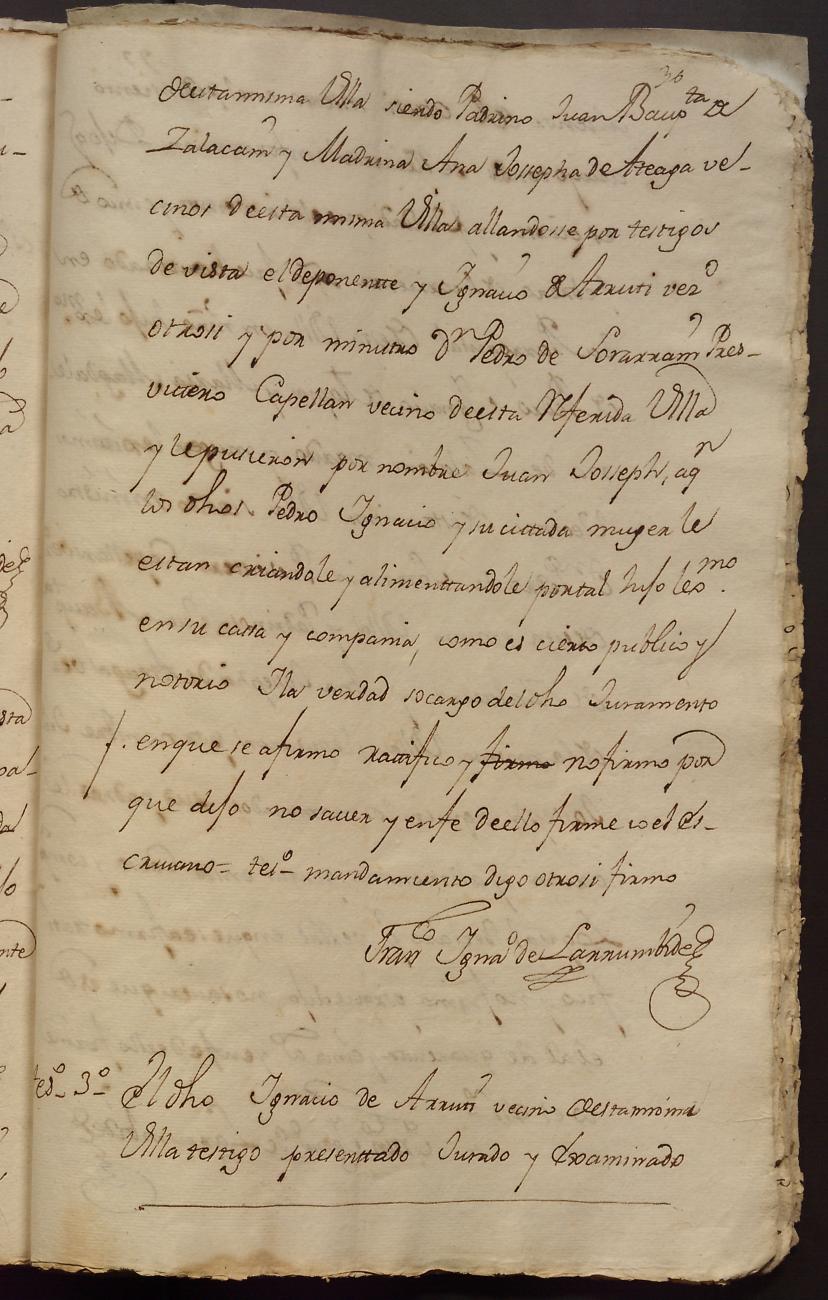 30
deesta misma Villa siendo Padrino Juan Baup.ta de
Zalacain y Madrina Ana Josepha de Ateaga ve-
cinos deesta misma Villa allandosse por testigos
de vista el deponentte y Ignacio de Arruti vez.o
otrosi y por ministro D.n Pedro de Sorarrain Pres-
vittero Capellan vecino deesta Referida Villa
y le pusieron por nombre Juan Josseph, aq.n
los dhos Pedro Ignacio y su cittada muger le
estan criandole y alimenttandole por tal hijo lex.mo
en su cassa y compania, como es cierto publico y
notorio I la verdad so cargo del dho Juramento
en que se afirmo ratifico y firmo no firmo por
que dijo no saver y en fe deello firme io el es-
crivano = tes.o mandamiento digo otrosi firmo
Fran.co Igna.o de Larrumbide
tes.o 3.o El dho Ignacio de Arruti vecino de esta misma
Villa testigo presenttado Jurado y Examinado